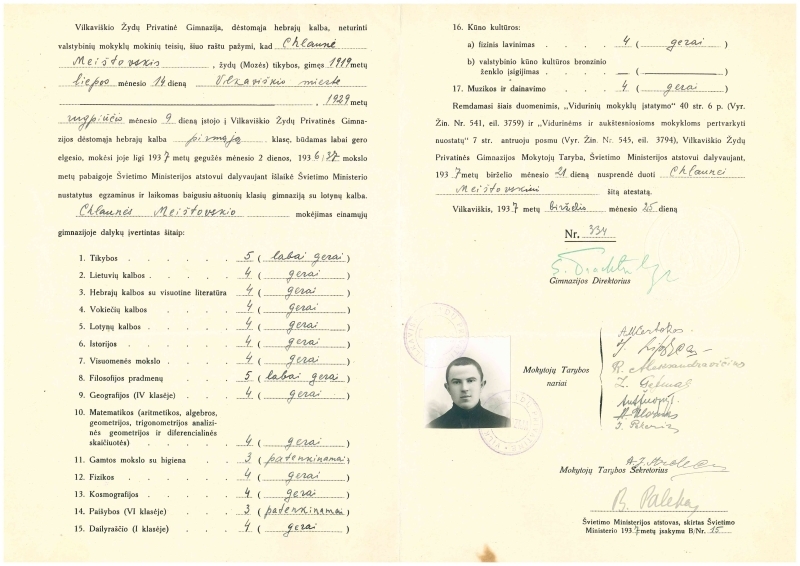 Vilkaviškio Žydų Privatinė Gimnazija, dėstomąja hebrajų kalba, neturinti
valstybinių mokyklų mokinių teisių, šiuo raštu pažymi, kad Chlaunė
Meištovskis, žydų (Mozės) tikybos, gimęs 1919 metų
liepos mėnesio 14 dieną Vilkaviškio mieste
, 1929 metų
rugpiūčio mėnesio 9 dieną įstojo į Vilkaviškio Žydų Privatinės Gimna-
zijos dėstomąja hebrajų kalba pirmąją klasę, būdamas labai gero
elgesio, mokėsi joje ligi 1937 metų gegužės mėnesio 2 dienos, 1936/37 mokslo
metų pabaigoje Švietimo Ministerijos atstovui dalyvaujant išlaikė Švietimo Ministerio
nustatytus egzaminus ir laikomas baigusiu aštuonių klasių gimnaziją su lotynų kalba.
Chlaunės Meištovskio mokėjimas einamųjų
gimnazijoje dalykų įvertintas šitaip:
1. Tikybos 5 (labai gerai)
2. Lietuvių kalbos 4 (gerai)
3. Hebrajų kalbos su visuotine literatūra 4 (gerai)
4. Vokiečių kalbos 4 (gerai)
5. Lotynų kalbos 4 (gerai)
6. Istorijos 4 (gerai)
7. Visuomenės mokslo 4 (gerai)
8. Filosofijos pradmenų 5 (labai gerai)
9. Geografijos (IV klasėje) 4 (gerai)
10. Matematikos (aritmetikos, algebros,
geometrijos, trigonometrijos analizi-
nės geometrijos ir diferencialinės
skaičiuotės) 4 (gerai)
11. Gamtos mokslo su higiena 3 (patenkinamai)
12. Fizikos 4 (gerai)
13. Kosmografijos 4 (gerai)
14. Paišybos (VI klasėje) 3 (patenkinamai)
15. Dailyraščio (I klasėje) 4 (gerai)
16. Kūno kultūros:
a) fizinis lavinimas 4 (gerai)
b) valstybinio kūno kultūros bronzinio
ženklo įsigijimas — ( )
17. Muzikos ir dainavimo 4 (gerai)
Remdamasi šiais duomenimis, „Vidurinių mokyklų įstatymo" 40 str. 6 p. (Vyr.
Žin. Nr. 541, eil. 3759) ir „Vidurinėms ir aukštesniosioms mokykloms pertvarkyti
nuostatų" 7 str. antruoju posmu (Vyr. Žin. Nr. 545, eil. 3794), Vilkaviškio Žydų
Privatinės Gimnazijos Mokytojų Taryba, Švietimo Ministerijos atstovui dalyvaujant,
1937 metų birželio mėnesio 21 dieną nusprendė duoti Chlaunei
Meištovskiui šitą atestatą.
Vilkaviškis, 1937 metų birželio mėnesio 25 dieną
Nr. 334
Gimnazijos Direktorius
Mokytojų Tarybos
nariai
Mokytojų Tarybos Sekretorius
Švietimo Ministerijos atstovas, skirtas Švietimo
Ministerio 1937 metų įsakymu B/Nr. 15